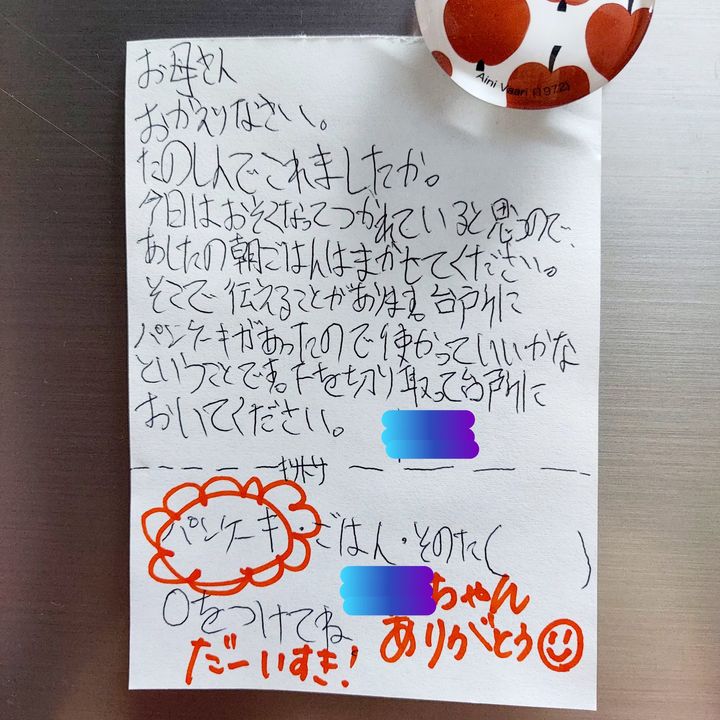 Aini Vaari (1972)
お母さん
おかえりなさい。
たのしんでこれましたか。
今日はおそくなってつかれていると思うので、
あしたの朝ごはんはまかせてください。
そこで伝えることがあります。台所に
パンケーキがあったので使かっていいかな
ということです。下を切り取って台所に
おいてください。
キリトリ
パンケーキ・ごはん・そのた(　　　)
ちゃん
○をつけてね
ありがとう
だーいすき!